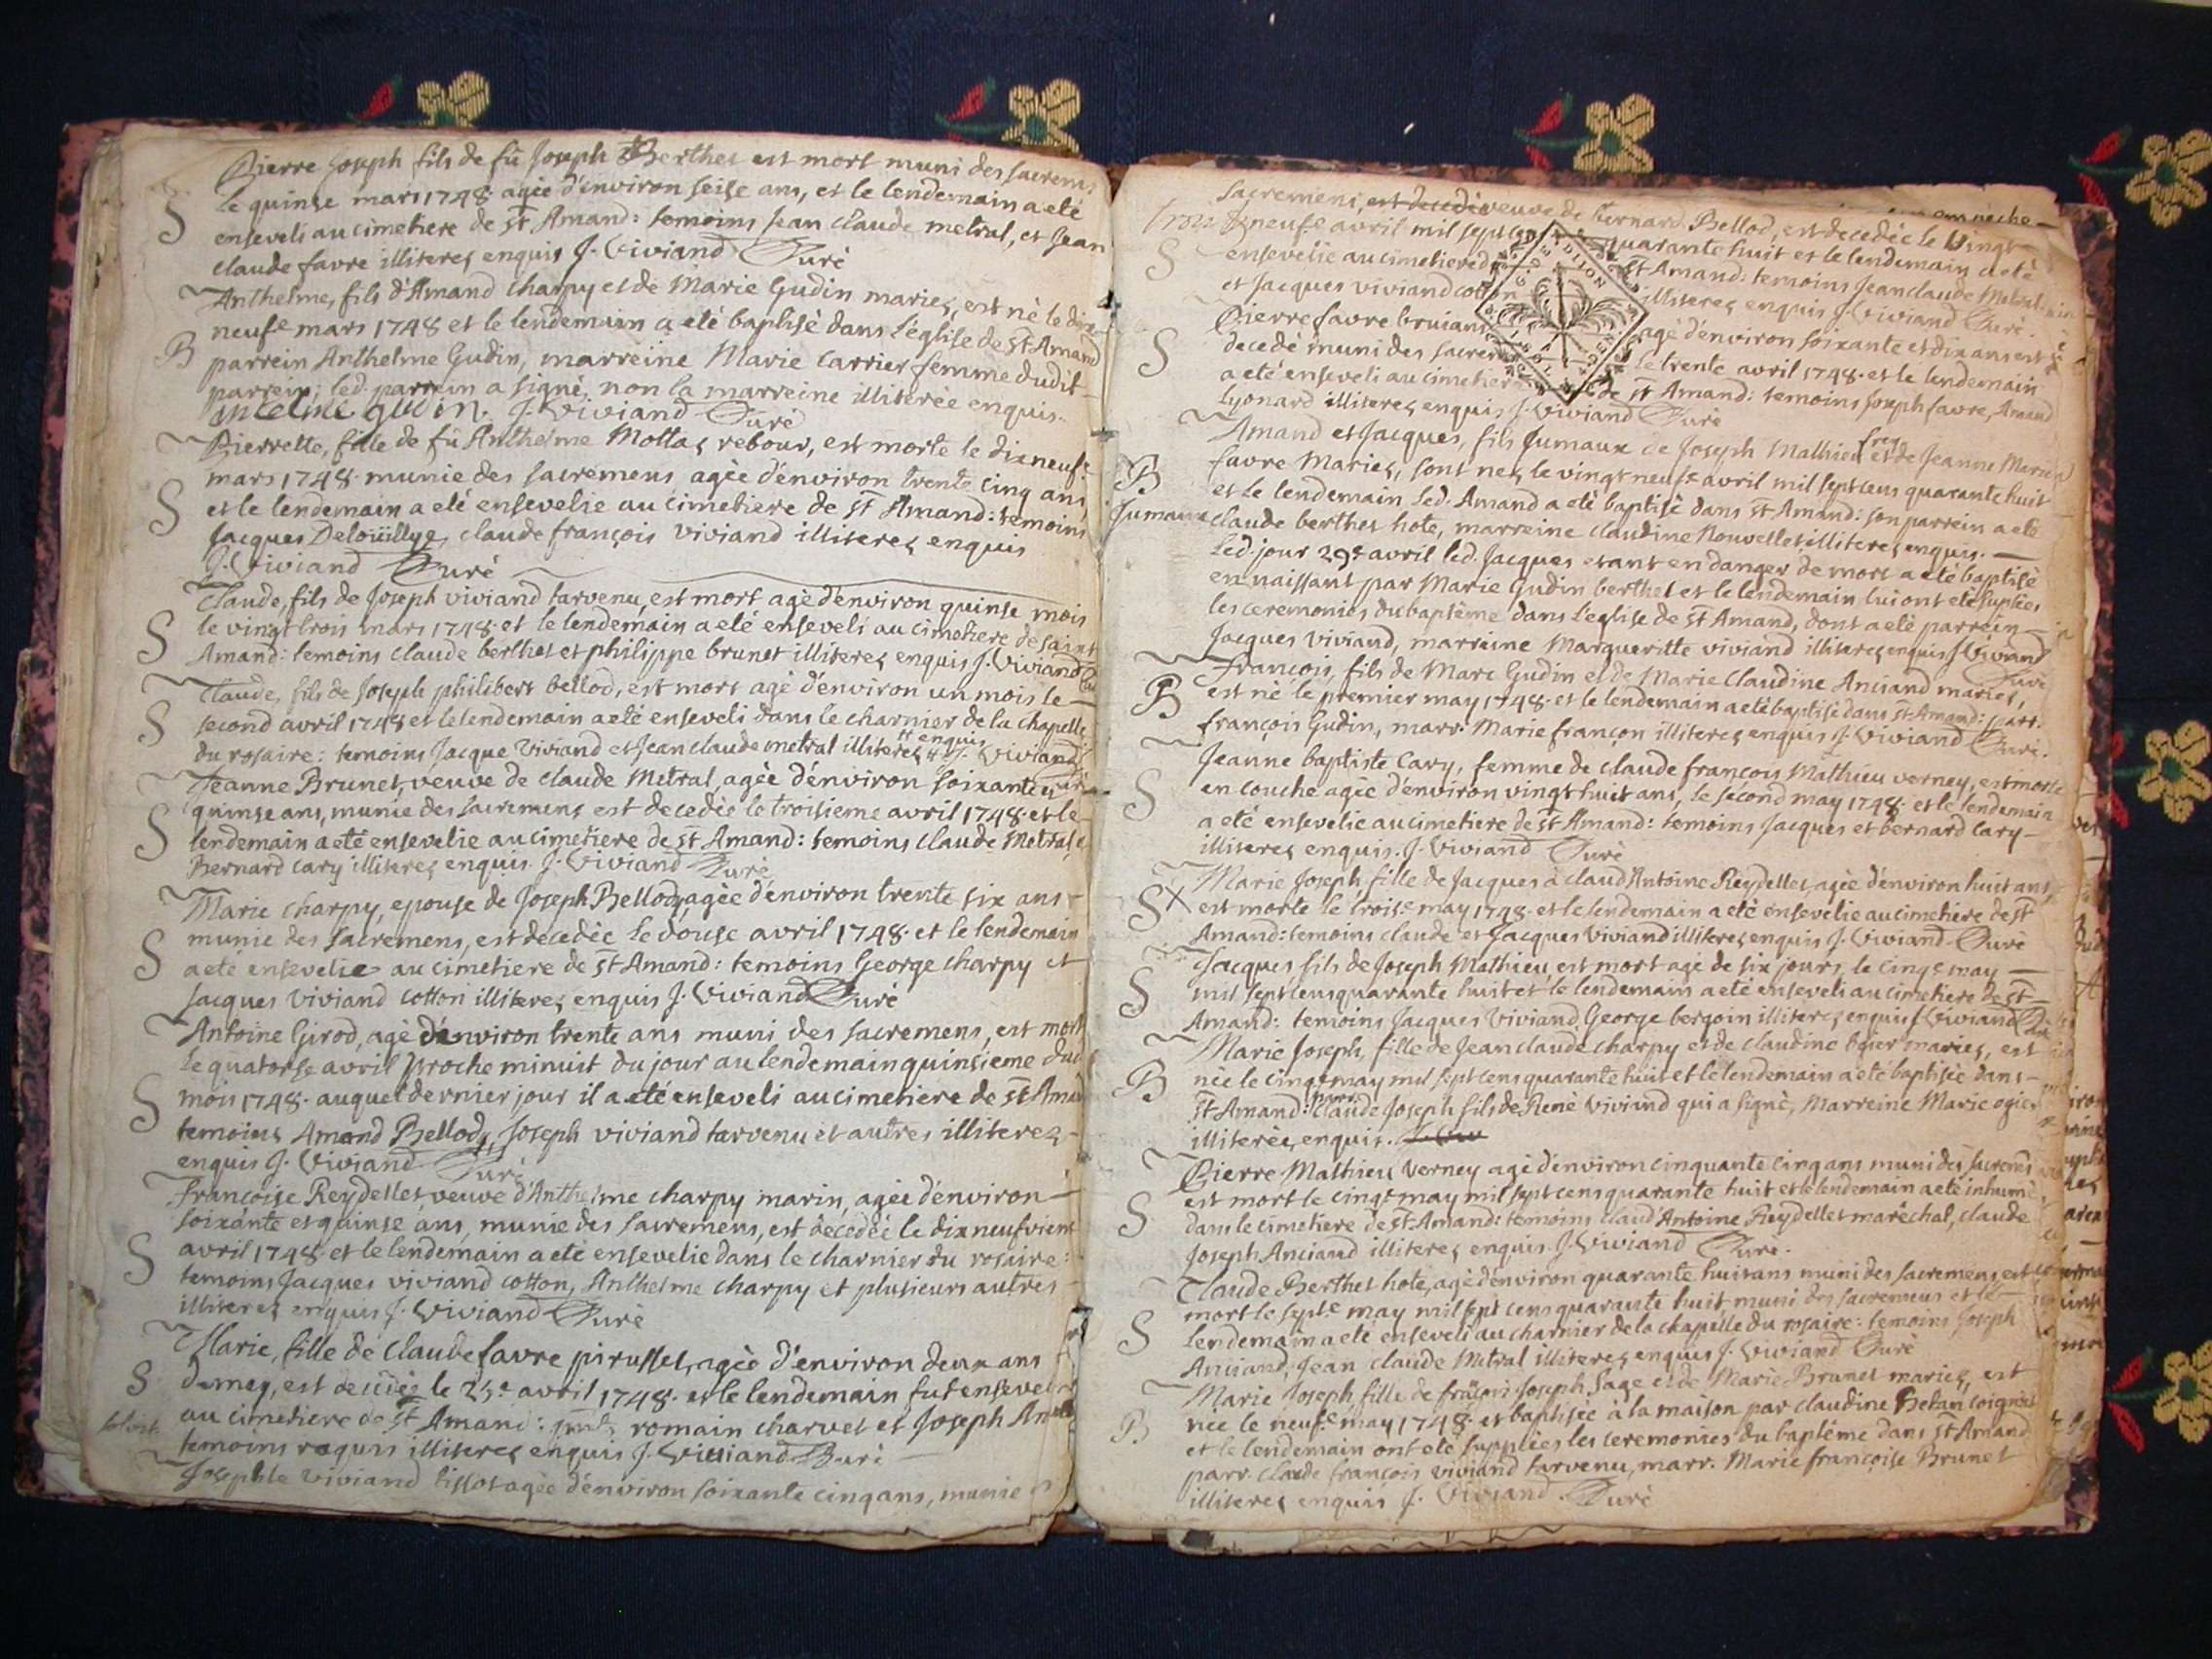 Pierre Joseph fils de fû Joseph Berthet est mort muni des sacremens
S
le quinse mars 1748. agée d'environ seise ans, et le lendemain a eté
enseveli au cimetiere de st Amand: temoins Jean claude metral, et Jean
claude favre illiterez enquis J. Viviand Curé
Anthelme, fils d'Amand charpy et de Marie Gudin mariez, est né le dix
neufe mars 1748 et le lendemain a eté baptisé dans l'église de st Amand
B
parrein Anthelme Gudin, marreine Marie Carrier femme dudit
parrein; led. parrein a signé, non la marreine illiterée enquis.
antelme gudin. J. Viviand Curé
Pierrette, fille de fû Anthelme Mottaz rebour, est morte le dixneufe
mars 1748. munie des sacremens agée d'environ trente cinq ans
S
et le lendemain a eté ensevelie au cimetiere de st Amand: temoins
Jacques Deloüillye, claude françois viviand illiterez enquis
J. Viviand Curé
Claude, fils de Joseph viviand tarvenu, est mort agé d'environ quinse mois
S
le vingt trois mars 1748. et le lendemain a eté enseveli au cimetiere de saint
Amand: temoins claude berthet et philippe brunet illiterez enquis J. Viviand
Claude, fils de Joseph philibert bellod, est mort agé d'environ un mois le
S
second avril 1748 et le lendemain a eté enseveli dans le charnier de la chapelle
du rosaire: temoins Jacque Viviand et Jean claude metral illiterez enquis J. Viviand
Jeanne Brunet, veuve de claude Metral, agée d'environ soixante et
quinse ans, munie des sacremens est decedée le troisieme avril 1748. et le
S
lendemain a eté ensevelie au cimetiere de st Amand: temoins claude Metral,
Bernard cary illiterez enquis J. Viviand Curé
Marie charpy, epouse de Joseph Bellod, agée d'environ trente six ans
munie des sacremens, est decedée le douse avril 1748. et le lendemain
S
a eté ensevelie au cimetiere de st Amand: temoins George charpy et
Jacques viviand cotton illiterez enquis J. Viviand Curé
Antoine Girod, agé d'environ trente ans muni des sacremens, est mort
le quatorse avril proche minuit du jour au lendemain quinsieme dud
S
mois 1748. auquel dernier jour il a eté enseveli au cimetiere de st Amand
temoins Amand Bellod, Joseph viviand tarvenu et autres illiterez
enquis J. Viviand Curé
françoise Reydellet, veuve d'Anthelme charpy marin, agée d'environ
soixante et quinse ans, munie des sacremens, est decedée le dixneufviem
S
avril 1748 et le lendemain a eté ensevelie dans le charnier du rosaire:
temoins Jacques viviand cotton, Anthelme charpy et plusieurs autres
illiterez enquis J. Viviand Curé
Marie, fille de Claude favre pirusset, agée d'environ deux ans
S
demey, est decedée le avril 1748. et le lendemain fut ensevelie
au cimetiere de st Amand: romain charvet et Joseph
temoins requis illiterez enquis J. Viviand Curé
Josephte viviand tissot agée d'environ soixante cinq ans, munie
sacremens, est decedée veuve de bernard Bellod, est decedée le Vingt
neufe avril mil sept cens quarante huit et le lendemain a eté
S
ensevelie au cimetiere de st Amand: temoins Jean claude Metral
et Jacques viviand cotton illiterez enquis J. Viviand Curé.
DIJON
Pierre favre bruians agé d'environ soixante et dix ans est
S
decedé muni des sacrem le trente avril 1748. et le lendemain
a eté enseveli au cimetiere de st Amand: temoins Joseph favre, Amand
Lyonard illiterez enquis J. Viviand Curé
Amand et Jacques, fils Jumaux de Joseph Mathieu et de Jeanne Marie
B
favre Mariez, sont nez le vingt neufe avril mil sept cens quarante huit
Jumaux
et le lendemain led. Amand a eté baptisé dans st Amand: son parrein a eté
claude berthet hote, marreine claudine Nouvellet illiterez enquis.
led. jour 29e avril led. Jacques etant en danger de mort a eté baptisé
en naissant par Marie Gudin berthet et le lendemain lui ont eté suplées
les ceremonies du baptême dans l'eglise de st Amand, dont a eté parrein
Jacques Viviand, marreine Margueritte viviand illiterez enquis J. Viviand
Curé
françois, fils de Marc Gudin et de Marie Claudine Anciand mariez,
B
est né le premier may 1748. et le lendemain a eté baptisé dans st Amand: parr.
françois Gudin, marr. Marie françon illiterez enquis J. Viviand Curé.
Jeanne baptiste Cary, femme de claude françois Mathieu verney, est morte
S
en couche agée d'environ vingt huit ans, le second may 1748. et le lendemain
a eté ensevelie au cimetiere de st Amand: temoins Jacques et bernard Cary
illiterez enquis. J. Viviand Curé
Marie Joseph fille de Jacques à claud Antoine Reydellet, agée d'environ huit ans,
S X
est morte le troise may 1748. et le lendemain a eté ensevelie au cimetiere de st
Amand: temoins claude et Jacques Viviand illiterez enquis J. Viviand Curé
Jacques fils de Joseph Mathieu, est mort agé de six jours, le cinqe may
S
mil sept cens quarante huit et le lendemain a eté enseveli au cimetiere de st
Amand: temoins Jacques Viviand, George bergoin illiterez enquis J. Viviand
Marie Joseph, fille de Jean claude charpy et de claudine ogier mariez, est
B
née le cinqe may mil sept cens quarante huit et le lendemain a eté baptisée dans
st Amand: parr. Claude Joseph fils de René Viviand qui a signé, Marreine Marie ogier
illiterée, enquis. J. Viv
Pierre Mathieu Verney agé d'environ cinquante cinq ans muni des sacremens
est mort le cinqe may mil sept cens quarante huit et le lendemain a eté inhumé
S
dans le cimetiere de st Amand: temoins claud'Antoine Reydellet maréchal, claude
Joseph Anciand illiterez enquis. J. Viviand Curé.
Claude Berthet hote, agé d'environ quarante huit ans muni des sacremens, est
mort le septe may mil sept cens quarante huit muni des sacremens et le
S
lendemain a eté enseveli au charnier de la chapelle du rosaire: temoins Joseph
Anciand, Jean claude Metral illiterez enquis J. Viviand Curé
Marie Joseph, fille de françois Joseph Sage et de Marie Brunet mariez, est
B
née le neufe may 1748. et baptisée à la maison par claudine
et le lendemain ont eté supplées les ceremonies du baptême dans st Amand
parr. claude françois viviand tarvenu, marr. Marie françoise Brunet
illiterez enquis J. Viviand Curé